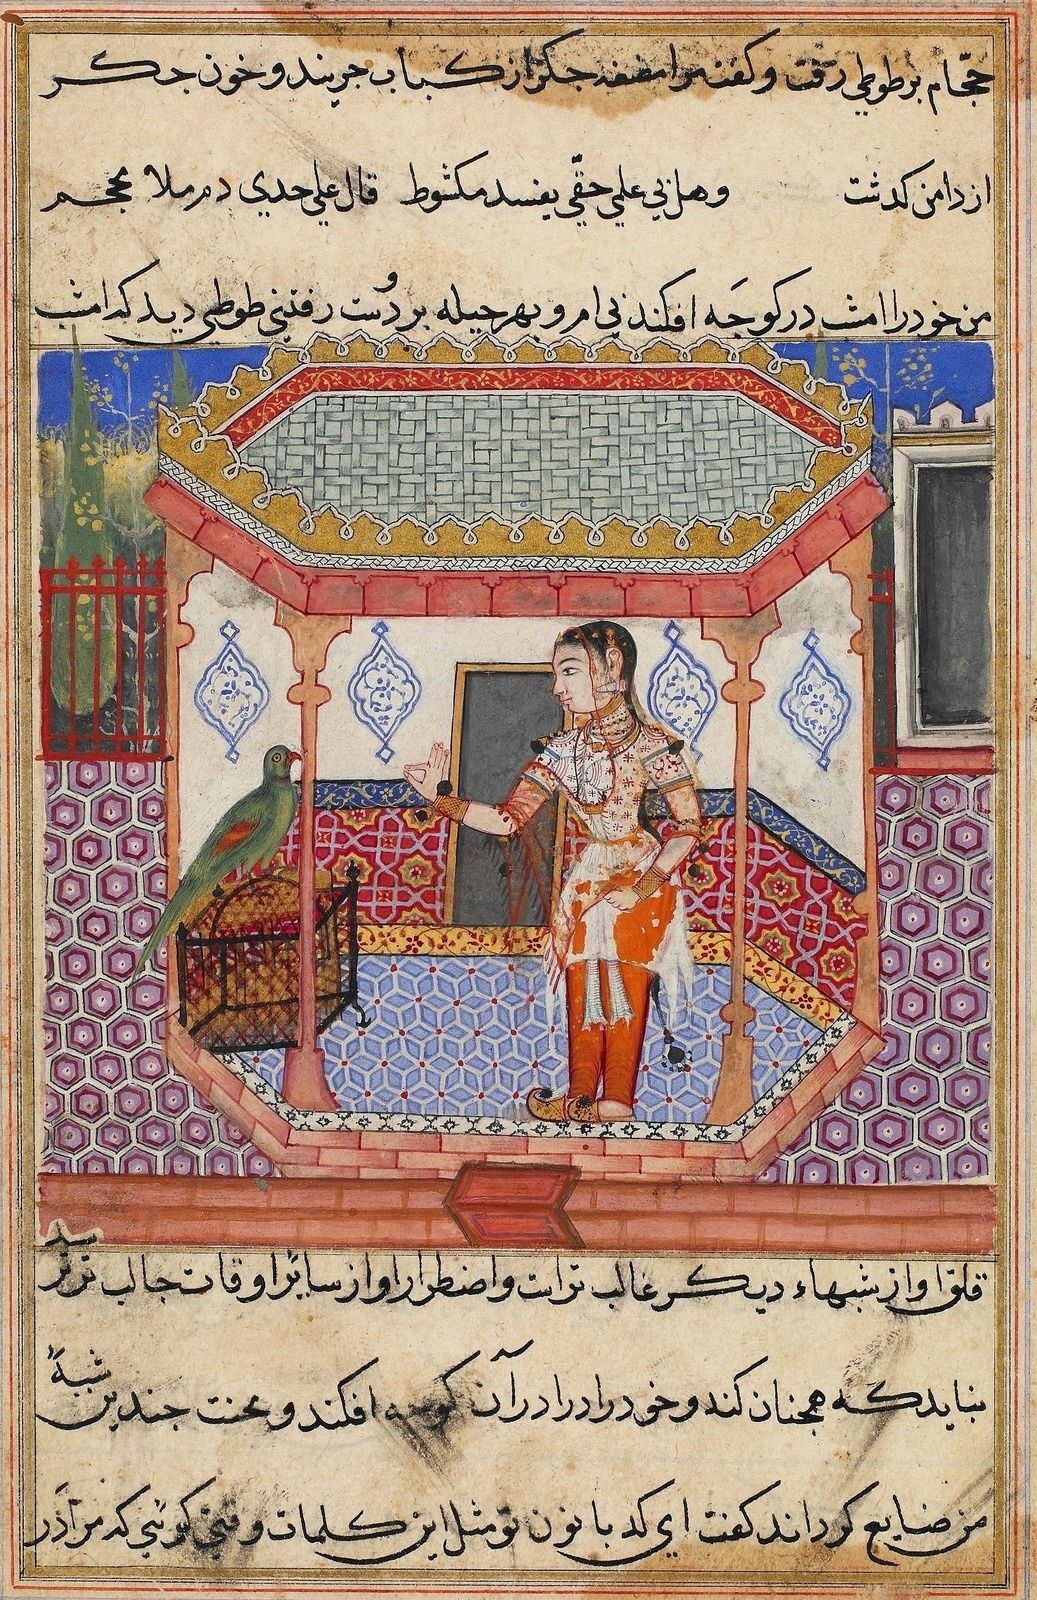 حجّام بر طوطی رفت و کفت مرا مضغه جکر از کباب جریند و خون جکر
از دامن کدشت وهل لی علی حقّی یفسد مکشوط قال علی حدی دم ملا محجم
من خود را امشب در کوجه افکند نی ام و بهر حیله بر دُست رفتنی طوطی دید که امشب
قلق او از شبهاء دیکر غالب تراست و اضطرار او از سائر اوقات جالب تر ترسید
بناید که همجنان کند و خود را در آن کوجه افکند و محنت جندین شبهٔ
من ضایع کرداند کفت ای کدبانو نو مثل این کلمات وقتی کوئی که من آذر